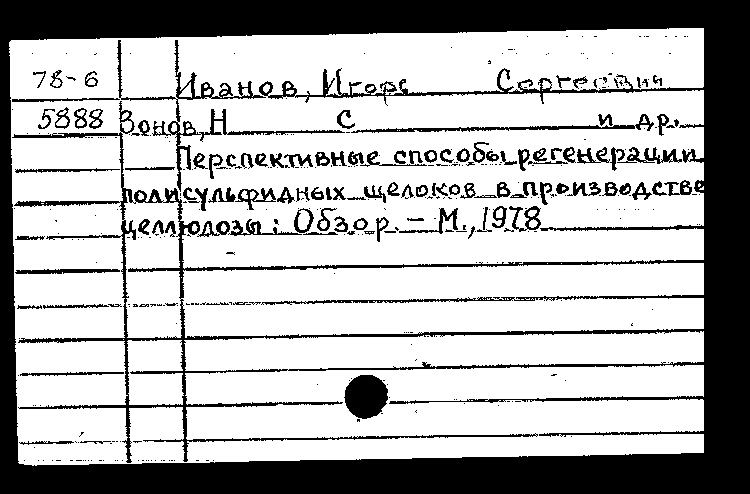 78-6 Иванов, Игорь Сергеевич
5888 Зонов, Н С и др.
Перспективные способы регенерации
полисульфидных щелоков в производстве
целлюлозы: Обзор. – М., 1978